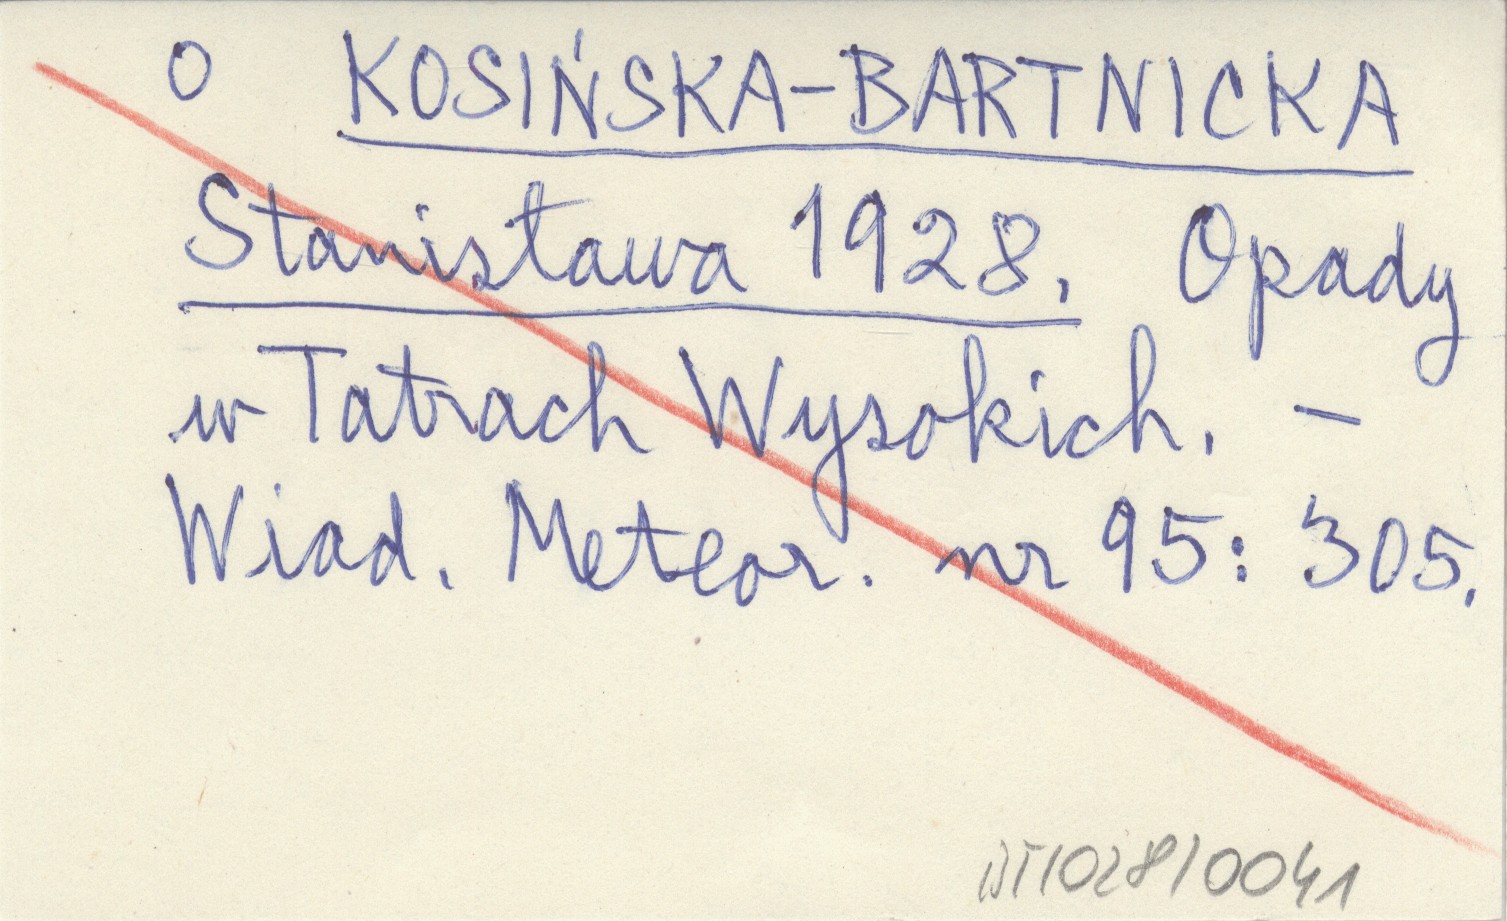 o KOSIŃSKA-BARTNICKA
Stanisława 1928. Opady
w Tatrach Wysokich. -
Wiad. Meteor. nr 95: 305.
WT/028/0041